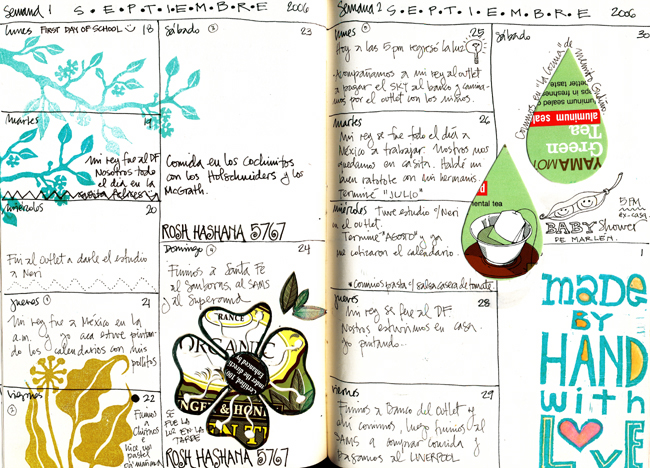 Semana 1 S·E·P·T·I·E·M·B·R·E 2006
lunes FIRST DAY OF SCHOOL 18
martes 19
Mi rey fue al DF
Nosotros todo
el día en la
miércoles
20
Fui al outlet a darle el estudio
a Neri
jueves 21
Mi rey fue a México en la
a.m. y yo acá estuve pintan-
do los calendarios con mis
pollitos
viernes
22
Fuimos
a
e
pastel
Sábado 23
Comida en los Cochinitos
con los Holschneiders y los
McGrath.
ROSH HASHANA 5767
Domingo 24
Fuimos a Santa Fe
al Sanborns, al SAMS
y al Superama
RANCE
ORGANIC
Certified 100
Enhanced by
& HON
SE
FUE LA
LUZ EN LA
TARDE
ROSH HASHANA 5767
Semana 2 S·E·P·T·I·E·M·B·R·E 2006
lunes 25
Hoy a las 5pm regresó la luz
Acompañamos a mi rey al outlet
a pagar el SKY al banco y camina-
mos por el outlet con los niños.
martes 26
Mi rey se fue todo el día a
México a trabajar. Nosotros nos
quedamos en casita. Hablé mi
buen ratotote con mi hermanis.
Terminé "JULIO"
miércoles Tuve estudio c/Neri
en el outlet.
Terminé "AGOSTO" y ya
me cotizaron el calendario.
Comimos pasta c/salsa casera de tomate.
jueves 28
Mi rey se fue al DF.
Nosotros estuvimos en casa.
Yo pintando...
viernes 29
Fuimos a Banco del outlet y
ahí comimos, luego fuimos al
SAMS a comprar comida y
pasamos al LIVERPOOL
Sábado 30
Comimos en "La Cocina" de
better taste
ps in freshness
uminum sealed
aluminum seal
Green
Tea
YAMAMO
ental tea
5PM
ex-casa
BABY Shower
DE MARLEN.
1
made
BY
HAND
with
LOVE